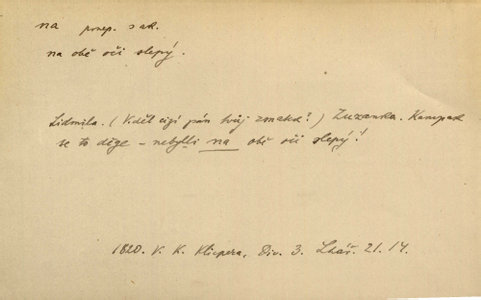 na předp. s ak.
na obě oči slepý.
Lidmila. (Viděl cizí pán tvůj zmatek?) Zuzanka. Kampak
se to děge – nebylli na obě oči slepý!
1820. V. K. Klicpera, Div. 3. Lhář. 21. 14.